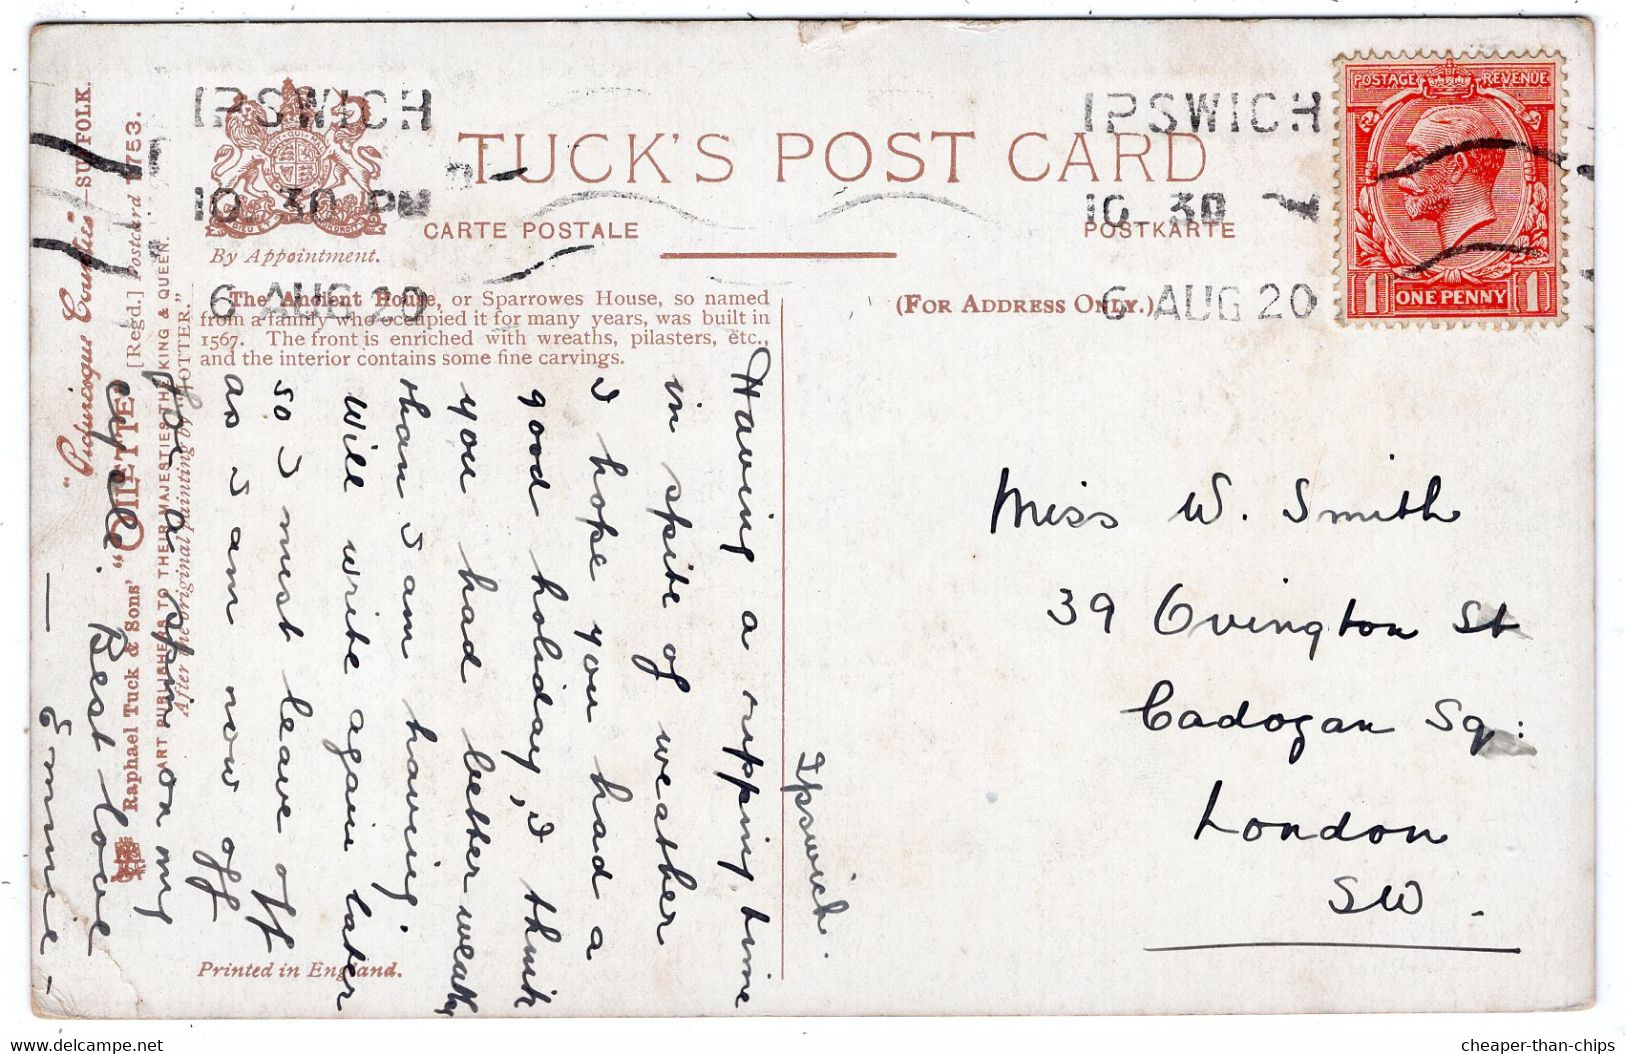 IPSWICH
10.30 PM
6 AUG 20
TUCK'S POST CARD
CARTE POSTALE
POSTKARTE
By Appointment.
IPSWICH
10 30
6 AUG 20
POSTAGE REVENUE
1 ONE PENNY 1
The Ancient House, or Sparrowes House, so named
from a family who occupied it for many years, was built in
1567. The front is enriched with wreaths, pilasters, etc.,
and the interior contains some fine carvings.
(FOR ADDRESS ONLY.)
"Picturesque Counties"—SUFFOLK.
Raphael Tuck & Sons' "OILETTE" [Regd.] Postcard 1753.
ART PUBLISHERS TO THEIR MAJESTIES THE KING & QUEEN.
After the original painting by "JOTTER."
Printed in England.
Ipswich.
Having a ripping time
in spite of weather
I hope you had a
good holiday, I think
you had better weather
than I am having.
Will write again later
so I must leave off
as I am now off
for a spin on my
cycle. Best love
— Emmie —
Miss W. Smith
39 Ovington St
Cadogan Sq:
London
SW.
www.delcampe.net
cheaper-than-chips